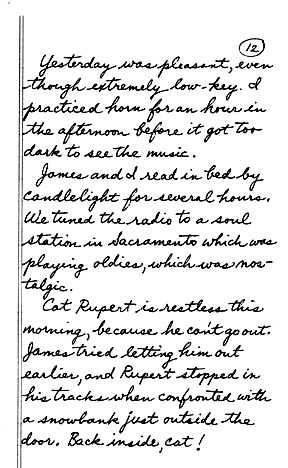 12
Yesterday was pleasant, even
though extremely low-key. I
practiced horn for an hour in
the afternoon before it got too
dark to see the music.
James and I read in bed by
candlelight for several hours.
We tuned the radio to a soul
station in Sacramento which was
playing oldies, which was nos-
talgic.
Cat Rupert is restless this
morning, because he can't go out.
James tried letting him out
earlier, and Rupert stopped in
his tracks when confronted with
a snowbank just outside the
door. Back inside, cat!